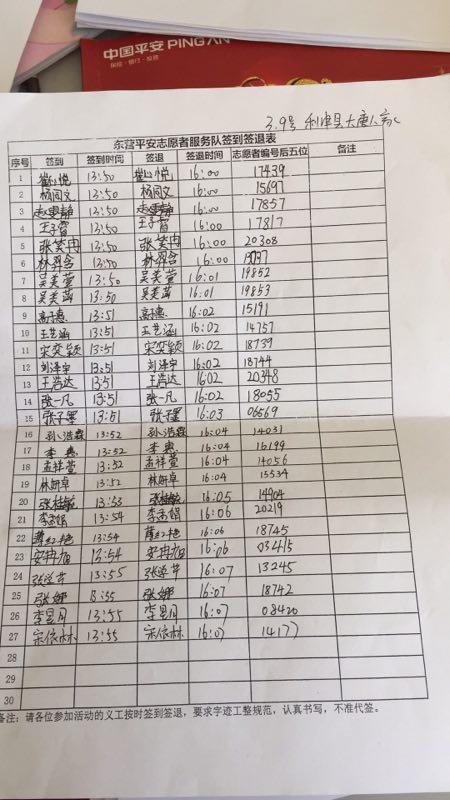 中国平安 PING AN
保险·银行·投资
3.9号 利津县大唐人家
东营平安志愿者服务队签到签退表
序号 签到 签到时间 签退 签退时间 志愿者编号后五位 备注
1 崔心悦 13:50 崔心悦 16:00 17439
2 杨闵文 13:50 杨闵文 16:00 15697
3 13:50 16:00 17857
4 王子睿 13:50 王子睿 16:00 17817
5 张笑冉 13:50 张笑冉 16:00 20308
6 林羿含 13:50 林羿含 16:00
7 吴美萱 13:50 吴美萱 16:01 19852
8 吴美菡 13:50 吴美菡 16:01 19853
9 高子惠 13:51 高子惠 16:02 15191
10 王艺涵 13:51 王艺涵 16:02 14757
11 宋奕颖 13:51 宋奕颖 16:02 18739
12 刘泽宇 13:51 刘泽宇 16:02 18744
13 王浩达 13:51 王浩达 16:02 20348
14 张一凡 13:51 张一凡 16:02 18055
15 张子墨 13:51 张子墨 16:03 06569
16 孙浩霖 13:52 孙浩霖 16:04 14031
17 李惠 13:52 李惠 16:04 16199
18 孟祥萱 13:52 孟祥萱 16:04 14056
19 林妍卓 13:52 林妍卓 16:04 15534
20 张桂敏 13:53 张桂敏 16:05 14904
21 李孟娟 13:54 李孟娟 16:06 20219
22 薄红艳 13:54 薄红艳 16:06 18745
23 安冉旭 13:54 安冉旭 16:06 03415
24 张学芹 13:55 张学芹 16:07 13245
25 张娜 13:55 张娜 16:07 18742
26 李昱月 13:55 李昱月 16:07 08420
27 宋依林 13:55 宋依林 16:07 14177
28
29
30
备注：请各位参加活动的义工按时签到签退，要求字迹工整规范，认真书写，不准代签。